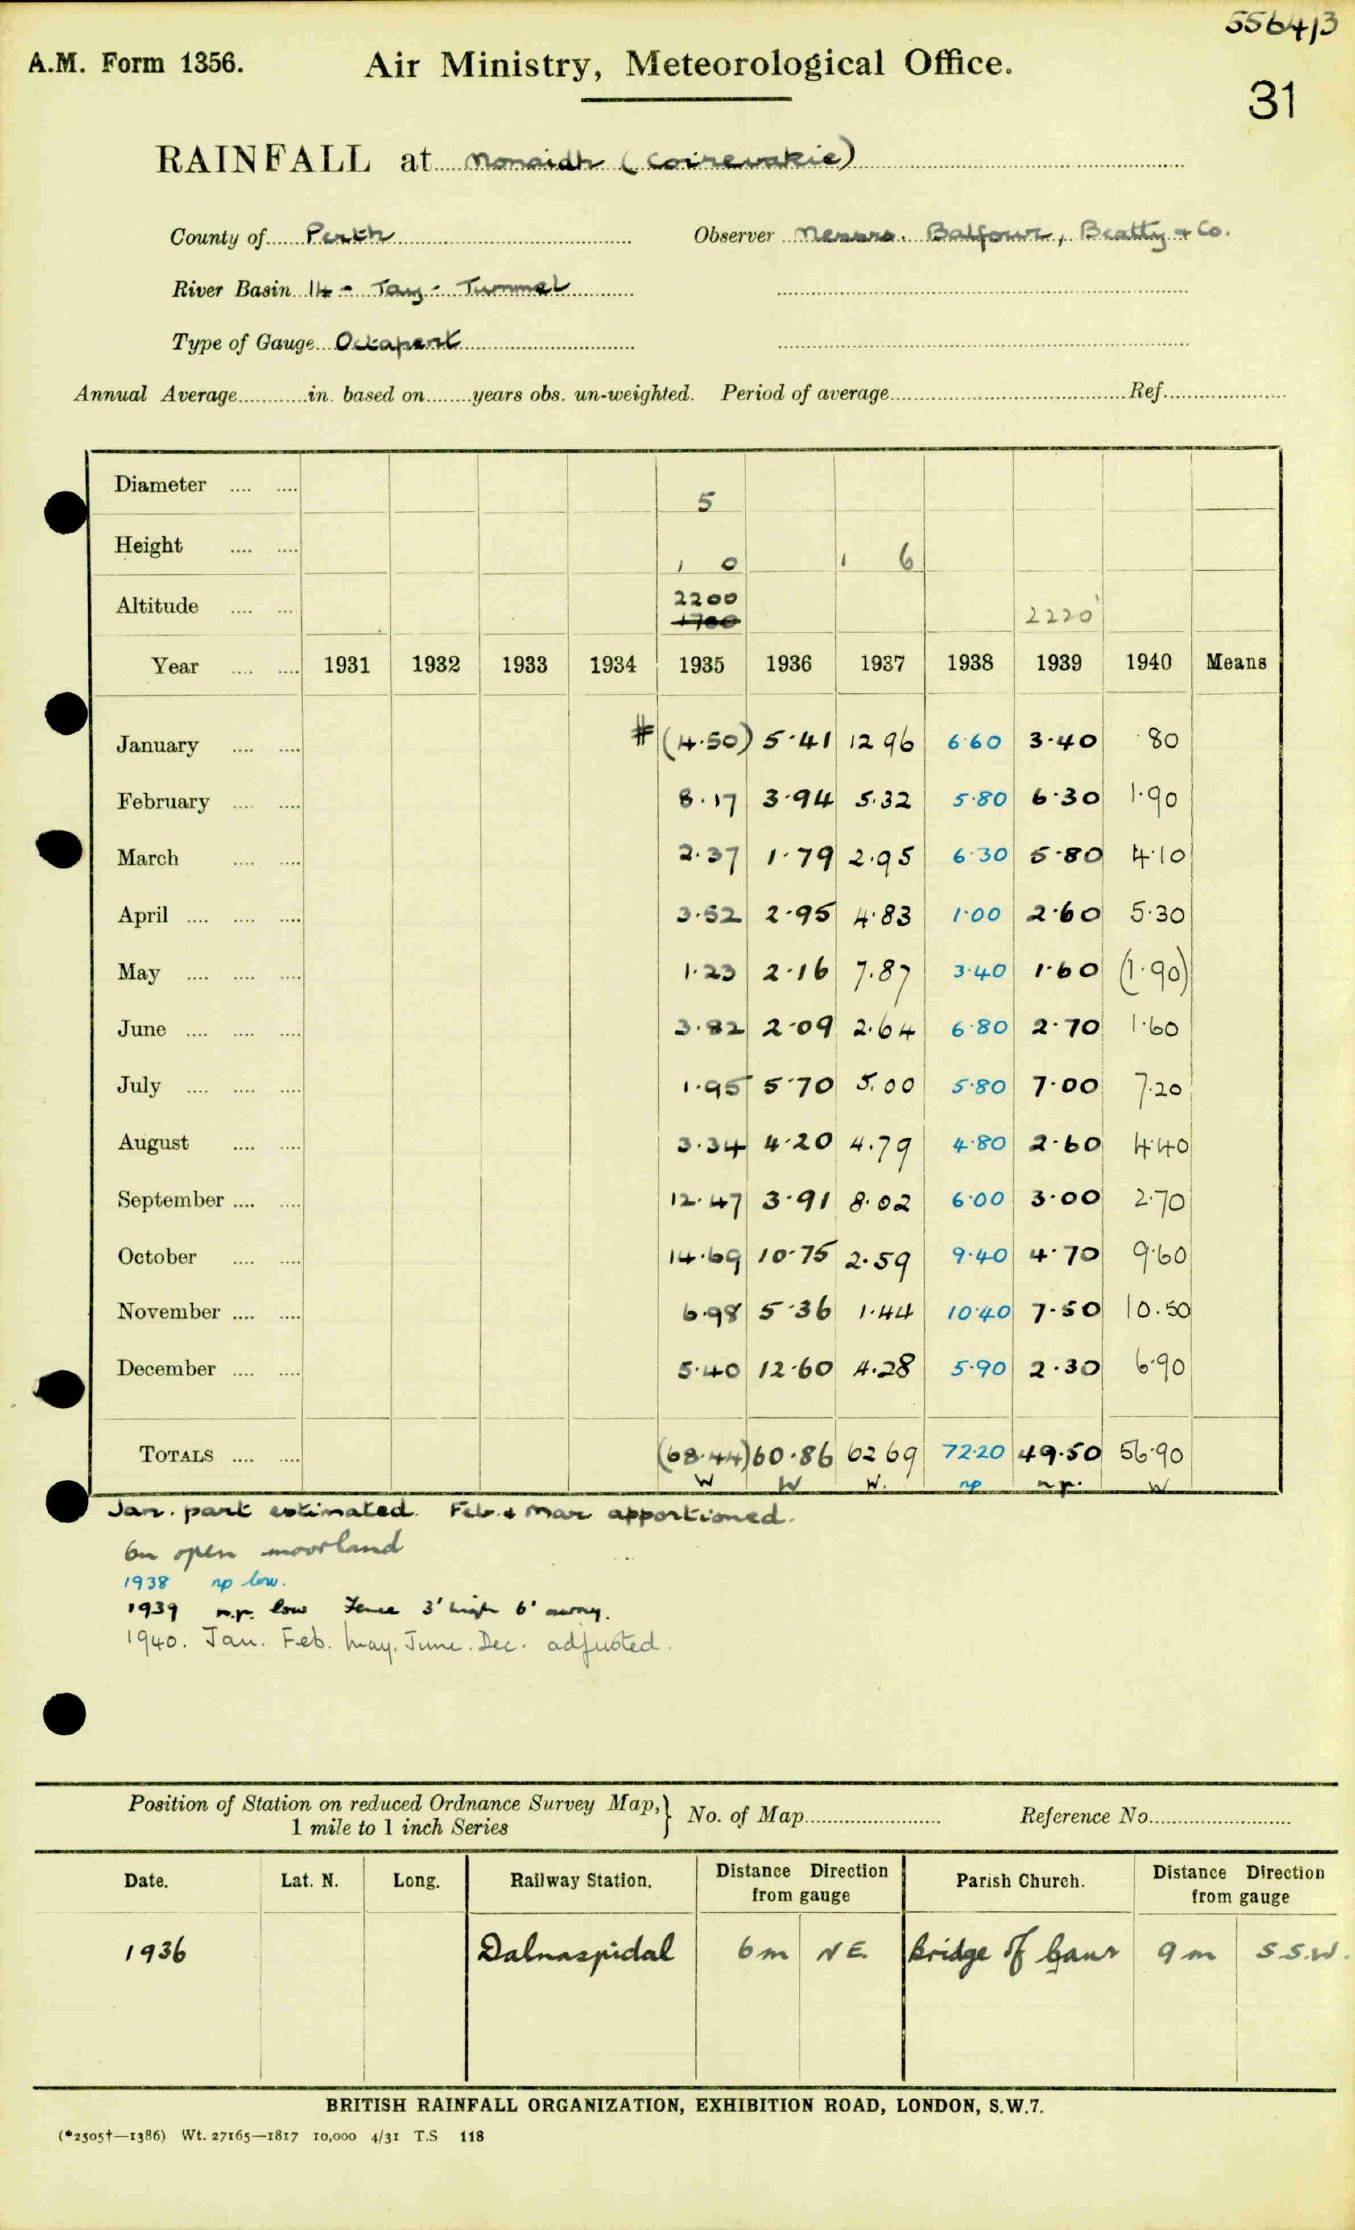 5564/3
A.M. Form 1356. Air Ministry, Meteorological Office.
31
RAINFALL at Monaidh (Coirevakie)
County of Perth Observer Messrs. Balfour, Beatty & Co.
River Basin 14 - Tay - Tummel
Type of Gauge Octapent
Annual Average in. based on years obs. un-weighted. Period of average Ref.
Diameter 5
Height 1 0 1 6
Altitude 2200 1700 2220'
Year 1931 1932 1933 1934 1935 1936 1937 1938 1939 1940 Means
January # (4.50) 5.41 12 96 6.60 3.40 .80
February 8.17 3.94 5.32 5.80 6.30 1.90
March 2.37 1.79 2.95 6.30 5.80 4.10
April 3.52 2.95 4.83 1.00 2.60 5.30
May 1.23 2.16 7.87 3.40 1.60 (1.90)
June 3.82 2.09 2.64 6.80 2.70 1.60
July 1.95 5.70 5.00 5.80 7.00 7.20
August 3.34 4.20 4.79 4.80 2.60 4.40
September 12.47 3.91 8.02 6.00 3.00 2.70
October 14.69 10.75 2.59 9.40 4.70 9.60
November 6.98 5.36 1.44 10.40 7.50 10.50
December 5.40 12.60 4.28 5.90 2.30 6.90
TOTALS (68.44) 60.86 62 69 72.20 49.50 56.90
W W W. np n.p. W
Jan. part estimated. Feb. & Mar apportioned.
On open moorland
1938 np low.
1939 n.p. low Fence 3' high 6' away.
1940. Jan. Feb. May. June. Dec. adjusted.
Position of Station on reduced Ordnance Survey Map, 1 mile to 1 inch Series } No. of Map Reference No.
Date. Lat. N. Long. Railway Station. Distance Direction from gauge Parish Church. Distance Direction from gauge
1936 Dalnaspidal 6 m NE. Bridge of Gaur 9 m S.S.W.
BRITISH RAINFALL ORGANIZATION, EXHIBITION ROAD, LONDON, S.W.7.
(*2505†—1386) Wt. 27165—1817 10,000 4/31 T.S 118